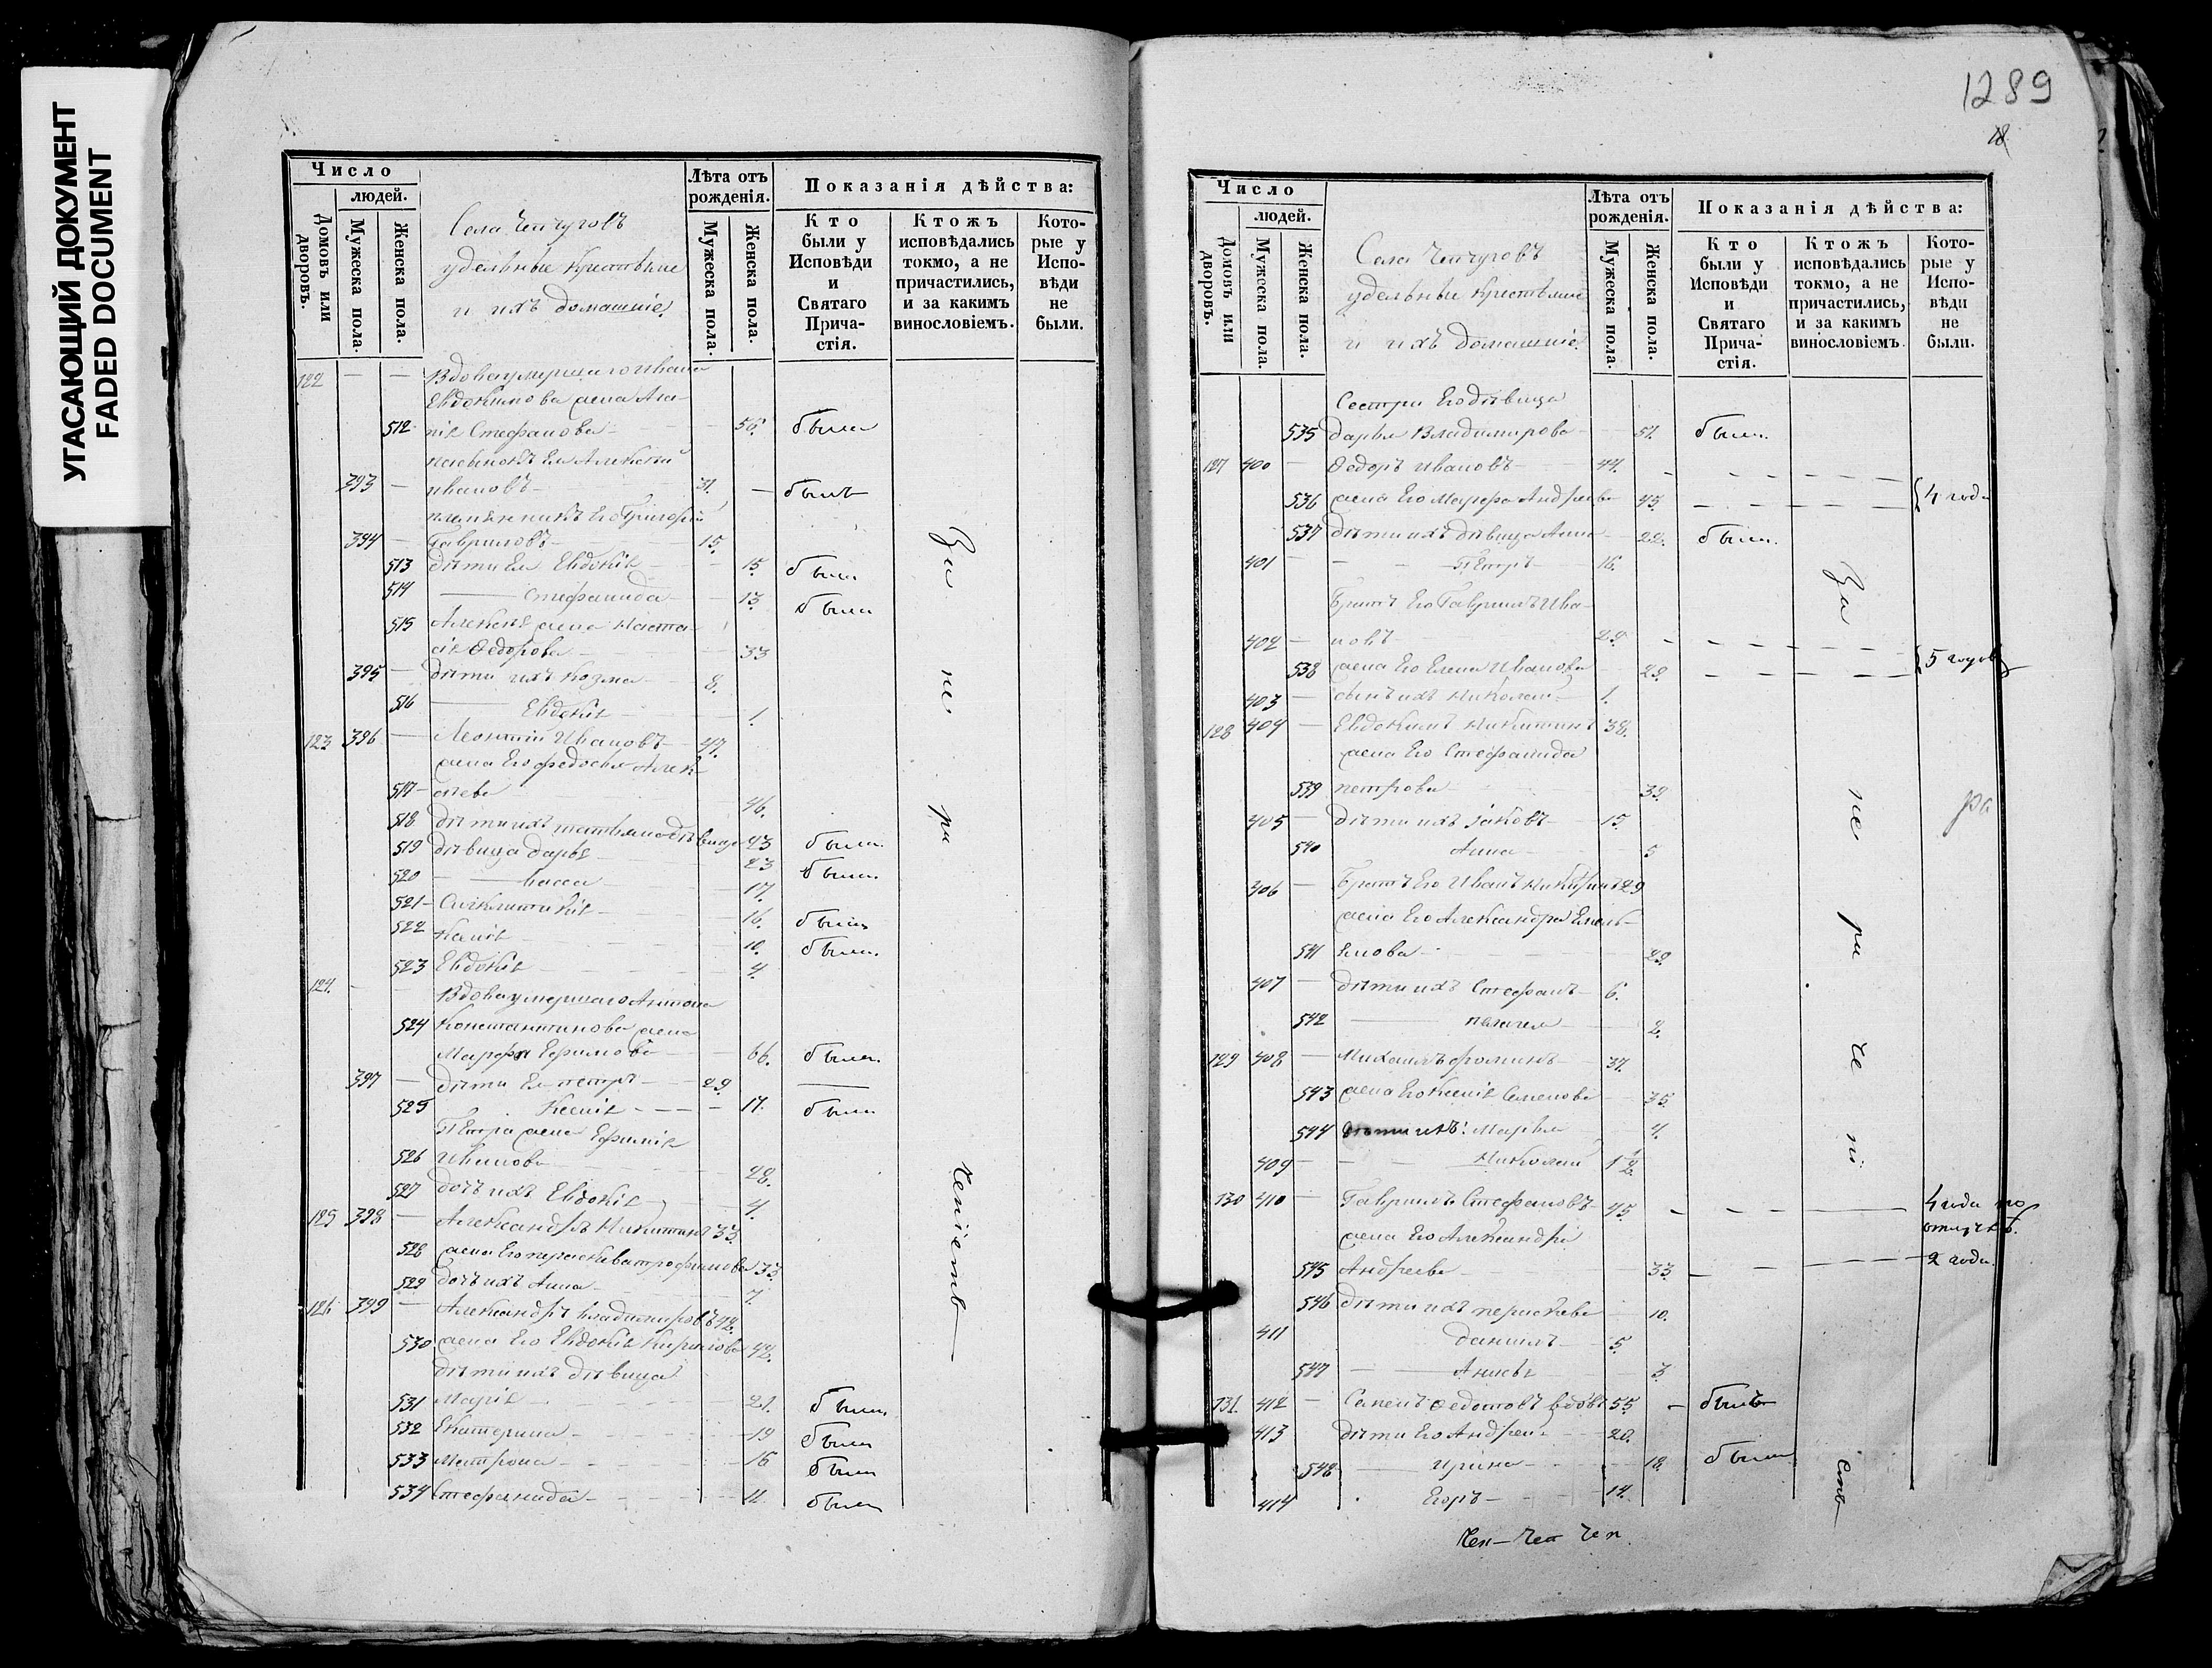 УГАСАЮЩИЙ ДОКУМЕНТ
FADED DOCUMENT
Число
людей.
Домовъ или дворовъ.
Мужеска пола.
Женска пола.
Села Чепчуговъ
удельные Крестьяне
и ихъ домашніе.
Лѣта отъ рожденія.
Мужеска пола.
Женска пола.
Показанія дѣйства:
Кто были у Исповѣди и Святаго Прича-стія.
Ктожъ исповѣдались токмо, а не причастились, и за какимъ винословіемъ.
Кото-рые у Испо-вѣди не были.
122 — — Вдова умершаго Ивана
Евдокимова жена Ага-
512 пія Стефанова 56. была
пасынокъ Ея Алексѣй
393 — Ивановъ 31. — былъ
племянникъ Его Григорій
394 — Гавриловъ 15.
513 дѣти Ея Евдокія 15. была
514 Стефанида 13. была
515 Алексѣя жена Наста-
сія Федорова 33
395 — дѣти ихъ Козма 8.
516 Евдокія 1.
123 396 — Леонтій Ивановъ 47.
жена Его Федосья Алек-
517 сѣева 46.
518 дѣти ихъ Татьяна дѣвица 23 была.
519 дѣвица Дарья 23 была.
520 Васса 17.
521 Синклитикія 16. была
522 Ксенія 10. была.
523 Евдокія 4.
124. Вдова умершаго Антона
524 Константинова жена
Марфа Ефимова 66. была.
397 — дѣти Ея Петръ 29.
525 Ксенія 17. была
Петра жена Ефимія
526 Иванова 28.
527 дочь ихъ Евдокія 4.
125 398 — Александръ Никитинъ 33.
528 жена Его Параскева Трофимова 33.
529 дочь ихъ Анна 7.
126 399 — Александръ Владимировъ 42.
530 жена Его Евдокія Кирилова 42.
дѣти ихъ дѣвица
531 Марія 21. была
532 Екатерина 19 была
533 Матрона 16 была
534 Стефанида 11. была
За не ра че ніемъ
1289
Число
людей.
Домовъ или дворовъ.
Мужеска пола.
Женска пола.
Села Чепчуговъ
удельные Крестьяне
и ихъ домашніе.
Лѣта отъ рожденія.
Мужеска пола.
Женска пола.
Показанія дѣйства:
Кто были у Исповѣди и Святаго Прича-стія.
Ктожъ исповѣдались токмо, а не причастились, и за какимъ винословіемъ.
Кото-рые у Испо-вѣди не были.
Сестра Его дѣвица
535 Дарья Владимирова 51. была.
127 400 — Федоръ Ивановъ 44.
536 жена Его Марфа Андреева 45. 4 года
537 дѣти ихъ дѣвица Анна 22. была.
401 — Петръ 16.
Братъ Его Гаврилъ Ива-
402 — новъ 29.
538 жена Его Елена Иванова 29. 5 годовъ
403 — сынъ ихъ Николай 1.
128 404 — Евдокимъ Никитинъ 38.
жена Его Стефанида
539 Петрова 39.
405 — дѣти ихъ Іаковъ 15.
540 Анна 5
406 — Братъ Его Иванъ Никитинъ 29
жена Его Александра Емель-
541 янова 29.
407 — дѣти ихъ Стефанъ 6.
542 Пелагея 2.
129 408 — Михаилъ Фоминъ 37.
543 жена Его Ксенія Семенова 35.
544 дѣти ихъ: Марья 4.
409 Николай 1/2
130 410 — Гаврилъ Стефановъ 45. 4 года по
отлучкѣ.
жена Его Александра
545 Андреева 33. 2 года.
546 дѣти ихъ Параскева 10.
411 Даниилъ 5.
547 Анисья 3.
131. 412 — Семенъ Федотовъ вдовъ 55. — былъ
413 дѣти Его Андрей 20.
548 Ирина 18. была
414 Егоръ 14.
За не ра че ні емъ